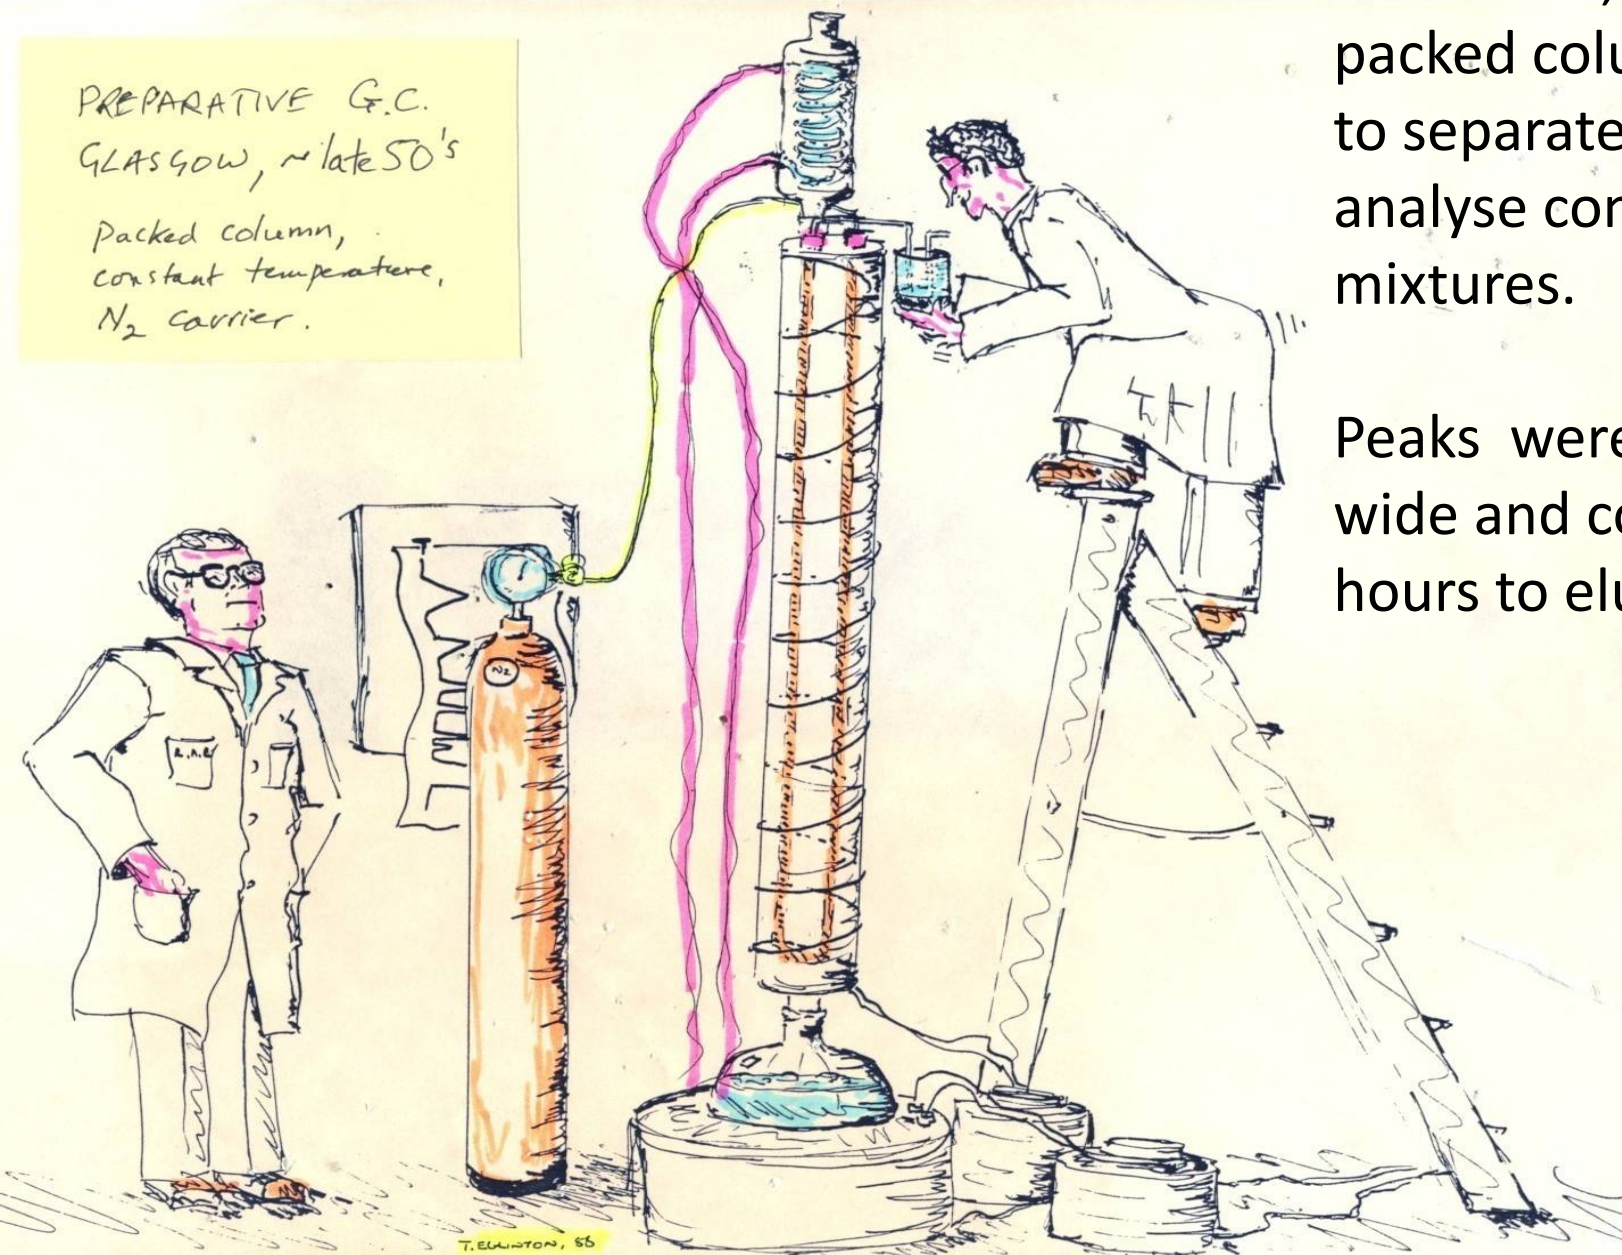 PREPARATIVE G.C.
GLASGOW, ~ late 50's
Packed column,
constant temperature,
N2 carrier.
packed colu
to separate
analyse con
mixtures.
Peaks were
wide and co
hours to elu
N2
T. EGLINTON, 86